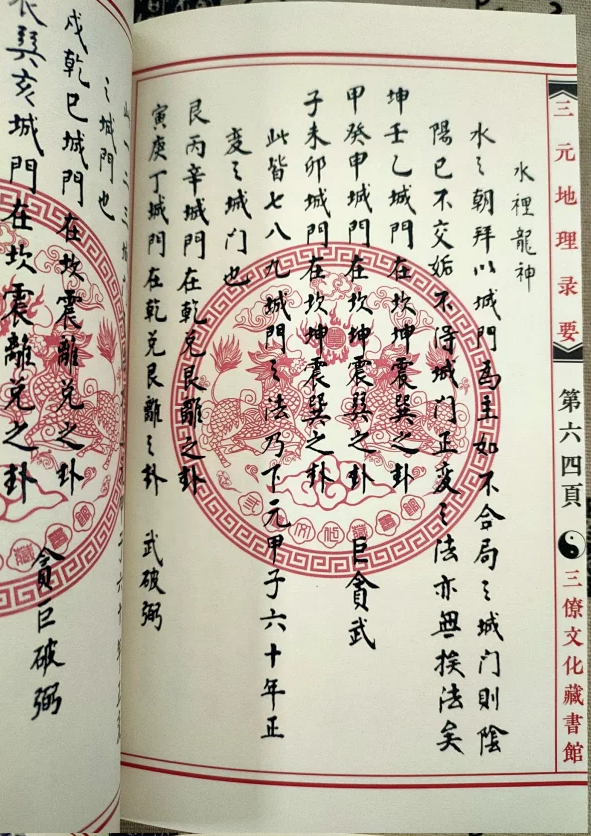 三元地理录要
第六四頁
三僚文化藏書館
水裡龍神
水之朝拜以城門為主如不合局之城门則陰
陽已不交姤不得城门正变之法亦無挨法矣
坤壬乙城門在坎坤震巽之卦
甲癸申城門在坎坤震巽之卦 巨貪武
子未卯城門在坎坤震巽之卦
此皆七八九城門之法乃下元甲子六十年正
变之城门也
艮丙辛城門在乾兑艮離之卦
寅庚丁城門在乾兑艮離之卦 武破弼
之城門也
戌乾巳城門在坎震離兑之卦
辰巽亥城門在坎震離兑之卦 貪巨破弼